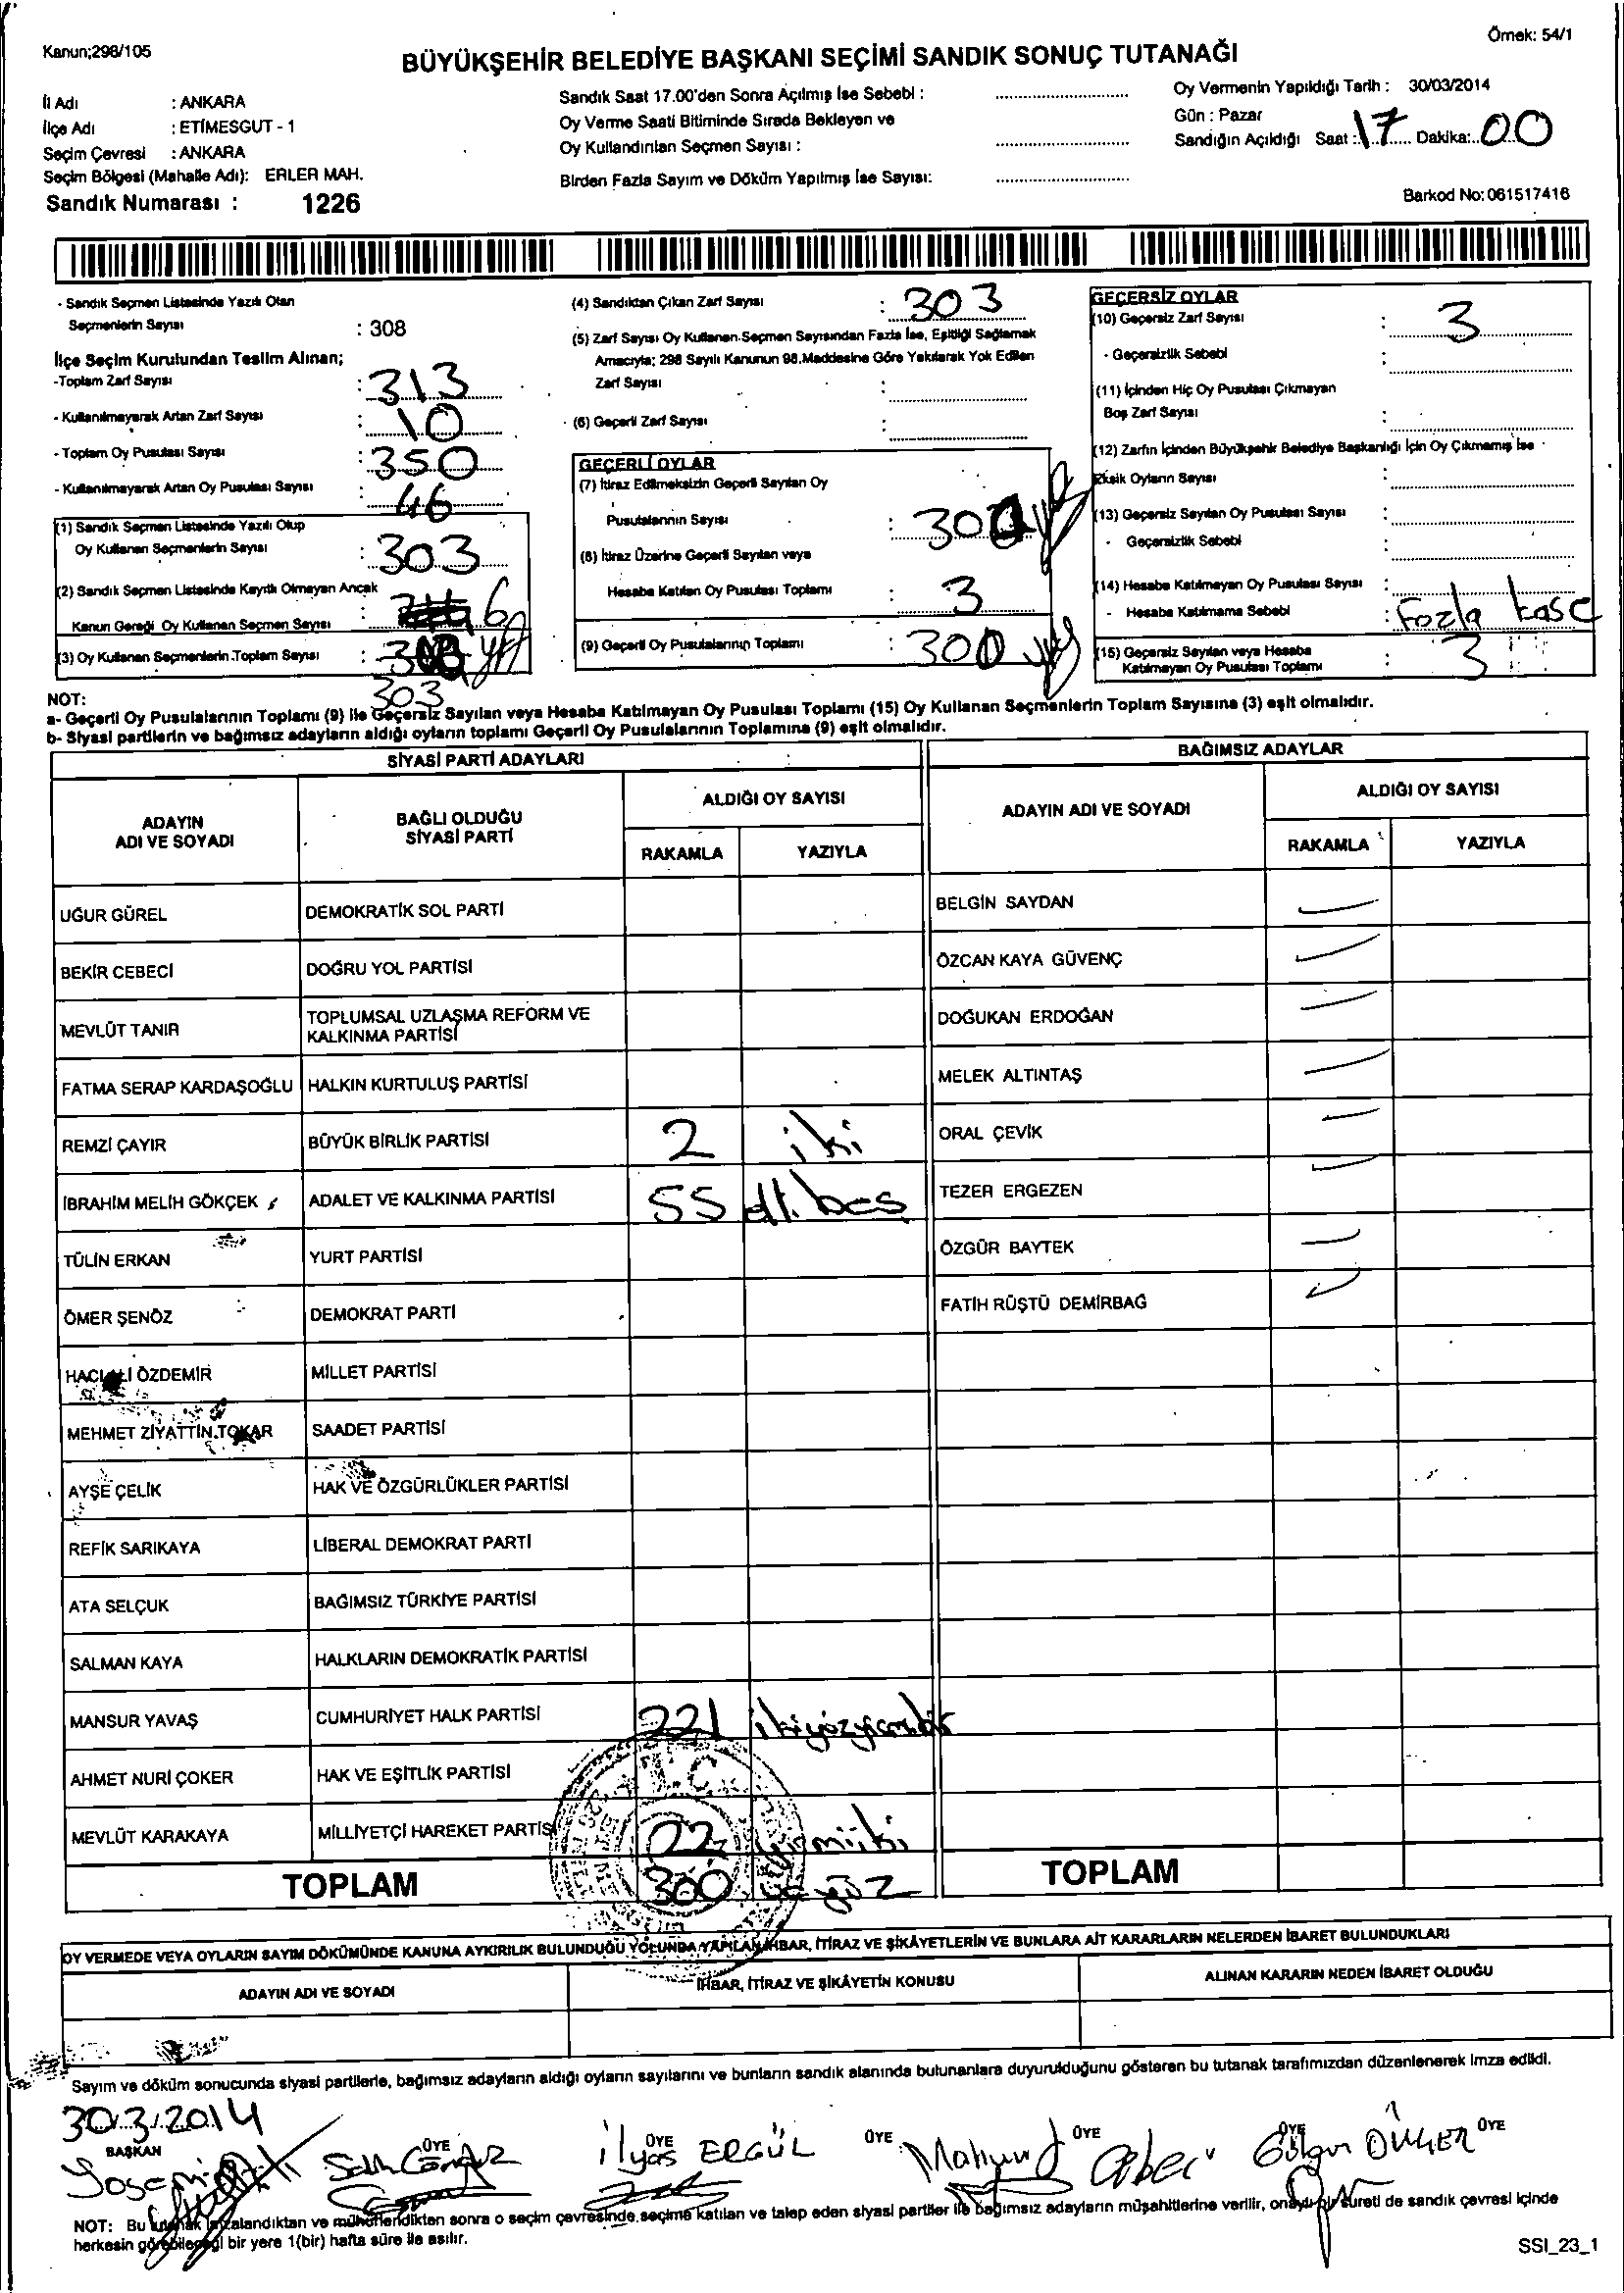 Kanun;298/105
Örnek: 54/1
BÜYÜKŞEHİR BELEDİYE BAŞKANI SEÇİMİ SANDIK SONUÇ TUTANAĞI
İl Adı : ANKARA
İlçe Adı : ETİMESGUT - 1
Seçim Çevresi : ANKARA
Seçim Bölgesi (Mahalle Adı): ERLER MAH.
Sandık Numarası : 1226
Sandık Saat 17.00'den Sonra Açılmış İse Sebebi :
Oy Verme Saati Bitiminde Sırada Bekleyen ve
Oy Kullandırılan Seçmen Sayısı :
Birden Fazla Sayım ve Döküm Yapılmış İse Sayısı:
Oy Vermenin Yapıldığı Tarih : 30/03/2014
Gün : Pazar
Sandığın Açıldığı Saat : 17 Dakika: 00
Barkod No: 061517416
- Sandık Seçmen Listesinde Yazılı Olan
Seçmenlerin Sayısı : 308
İlçe Seçim Kurulundan Teslim Alınan;
-Toplam Zarf Sayısı : 313
- Kullanılmayarak Artan Zarf Sayısı : 10
- Toplam Oy Pusulası Sayısı : 350
- Kullanılmayarak Artan Oy Pusulası Sayısı : 46
(1) Sandık Seçmen Listesinde Yazılı Olup
Oy Kullanan Seçmenlerin Sayısı : 303
(2) Sandık Seçmen Listesinde Kayıtlı Olmayan Ancak
Kanun Gereği Oy Kullanan Seçmen Sayısı : 6
(3) Oy Kullanan Seçmenlerin Toplam Sayısı :
303
(4) Sandıktan Çıkan Zarf Sayısı : 303
(5) Zarf Sayısı Oy Kullanan Seçmen Sayısından Fazla İse, Eşitliği Sağlamak
Amacıyla; 298 Sayılı Kanunun 98.Maddesine Göre Yakılarak Yok Edilen
Zarf Sayısı :
(6) Geçerli Zarf Sayısı :
GEÇERLİ OYLAR
(7) İtiraz Edilmeksizin Geçerli Sayılan Oy
Pusulalarının Sayısı : 300
(8) İtiraz Üzerine Geçerli Sayılan veya
Hesaba Katılan Oy Pusulası Toplamı : 3
(9) Geçerli Oy Pusulalarının Toplamı : 300
GEÇERSİZ OYLAR
(10) Geçersiz Zarf Sayısı : 3
- Geçersizlik Sebebi :
(11) İçinden Hiç Oy Pusulası Çıkmayan
Boş Zarf Sayısı :
(12) Zarfın İçinden Büyükşehir Belediye Başkanlığı İçin Oy Çıkmamış İse
Eksik Oyların Sayısı :
(13) Geçersiz Sayılan Oy Pusulası Sayısı :
- Geçersizlik Sebebi :
(14) Hesaba Katılmayan Oy Pusulası Sayısı :
- Hesaba Katılmama Sebebi : Fazla kaşe
(15) Geçersiz Sayılan veya Hesaba
Katılmayan Oy Pusulası Toplamı : 3
NOT:
a- Geçerli Oy Pusulalarının Toplamı (9) ile Geçersiz Sayılan veya Hesaba Katılmayan Oy Pusulası Toplamı (15) Oy Kullanan Seçmenlerin Toplam Sayısına (3) eşit olmalıdır.
b- Siyasi partilerin ve bağımsız adayların aldığı oyların toplamı Geçerli Oy Pusulalarının Toplamına (9) eşit olmalıdır.
SİYASİ PARTİ ADAYLARI
ADAYIN ADI VE SOYADI
BAĞLI OLDUĞU SİYASİ PARTİ
ALDIĞI OY SAYISI
RAKAMLA YAZIYLA
UĞUR GÜREL DEMOKRATİK SOL PARTİ
BEKİR CEBECİ DOĞRU YOL PARTİSİ
MEVLÜT TANIR TOPLUMSAL UZLAŞMA REFORM VE
KALKINMA PARTİSİ
FATMA SERAP KARDAŞOĞLU HALKIN KURTULUŞ PARTİSİ
REMZİ ÇAYIR BÜYÜK BİRLİK PARTİSİ 2 iki
İBRAHİM MELİH GÖKÇEK ADALET VE KALKINMA PARTİSİ 55 elli beş
TÜLİN ERKAN YURT PARTİSİ
ÖMER ŞENÖZ DEMOKRAT PARTİ
HACI ALİ ÖZDEMİR MİLLET PARTİSİ
MEHMET ZİYATTİN TOKAR SAADET PARTİSİ
AYŞE ÇELİK HAK VE ÖZGÜRLÜKLER PARTİSİ
REFİK SARIKAYA LİBERAL DEMOKRAT PARTİ
ATA SELÇUK BAĞIMSIZ TÜRKİYE PARTİSİ
SALMAN KAYA HALKLARIN DEMOKRATİK PARTİSİ
MANSUR YAVAŞ CUMHURİYET HALK PARTİSİ 221 ikiyüzyirmibir
AHMET NURİ ÇOKER HAK VE EŞİTLİK PARTİSİ
MEVLÜT KARAKAYA MİLLİYETÇİ HAREKET PARTİSİ 22 yirmiiki
TOPLAM 300 üçyüz
BAĞIMSIZ ADAYLAR
ADAYIN ADI VE SOYADI
ALDIĞI OY SAYISI
RAKAMLA YAZIYLA
BELGİN SAYDAN
ÖZCAN KAYA GÜVENÇ
DOĞUKAN ERDOĞAN
MELEK ALTINTAŞ
ORAL ÇEVİK
TEZER ERGEZEN
ÖZGÜR BAYTEK
FATİH RÜŞTÜ DEMİRBAĞ
TOPLAM
OY VERMEDE VEYA OYLARIN SAYIM DÖKÜMÜNDE KANUNA AYKIRILIK BULUNDUĞU YOLUNDA YAPILAN İHBAR, İTİRAZ VE ŞİKÂYETLERİN VE BUNLARA AİT KARARLARIN NELERDEN İBARET BULUNDUKLARI
ADAYIN ADI VE SOYADI
İHBAR, İTİRAZ VE ŞİKÂYETİN KONUSU
ALINAN KARARIN NEDEN İBARET OLDUĞU
Sayım ve döküm sonucunda siyasi partilerle, bağımsız adayların aldığı oyların sayılarını ve bunların sandık alanında bulunanlara duyurulduğunu gösteren bu tutanak tarafımızdan düzenlenerek imza edildi.
30.3.2014
BAŞKAN ÜYE ÜYE ÜYE ÜYE ÜYE ÜYE
İlyas ERGÜL
NOT: Bu tutanak imzalandıktan ve mühürlendikten sonra o seçim çevresinde seçime katılan ve talep eden siyasi partiler ile bağımsız adayların müşahitlerine verilir, onaylı bir sureti de sandık çevresi içinde
herkesin görebileceği bir yere 1(bir) hafta süre ile asılır.
SSI_23_1